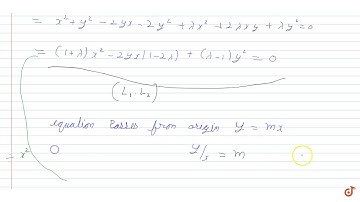 = x² + y² - 2yx - 2y² + λx² + 2λxy + λy² = 0
= (1+λ)x² - 2yx(1-2λ) + (λ-1)y² = 0
(L₁ . L₂)
equation passes from origin y = mx
= x²
0 y/x = m